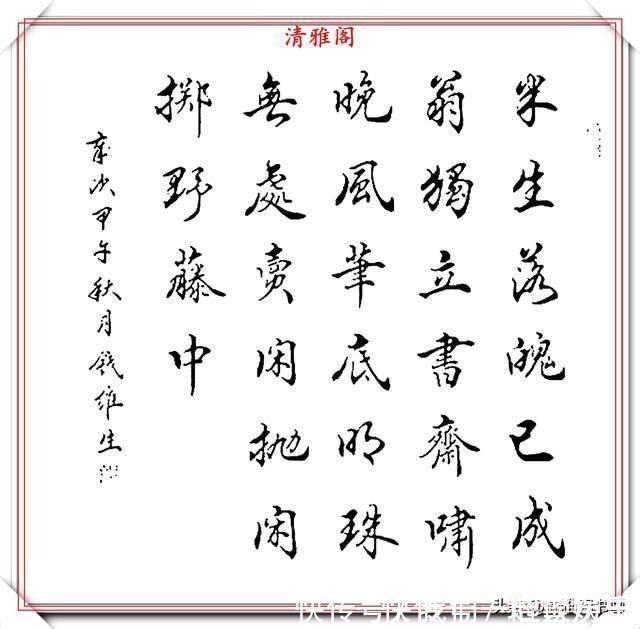 清雅阁
半生落魄已成
翁獨立書齋嘯
晚風筆底明珠
無處賣闲抛闲
擲野藤中
歲次甲午秋月錢維生
快传号